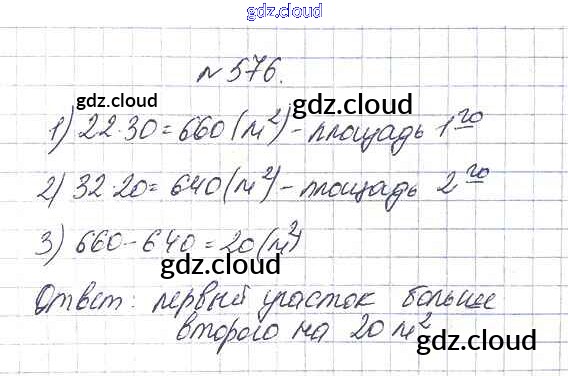 gdz.cloud
№576.
gdz.cloud
gdz.cloud
1) 22·30=660(м²) – площадь 1го
2) 32·20=640(м²) – площадь 2го
3) 660–640=20(м²)
gdz.cloud
Ответ: первый участок больше
второго на 20 м²
gdz.cloud
gdz.cloud